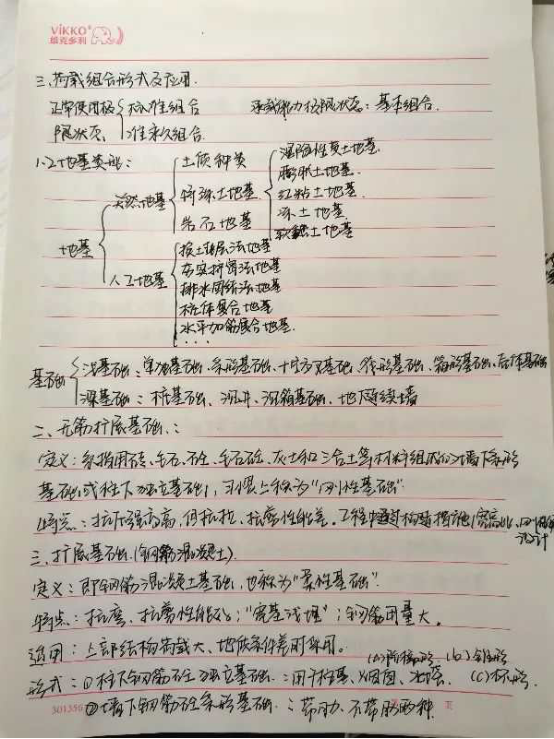 ViKKO
威克多利
三、荷载组合形式及应用.
正常使用极 标准组合 承载能力极限状态：基本组合.
限状态、 准永久组合
1.2地基类型：
土质种类
天然地基 特殊土地基
岩石地基
湿陷性黄土地基.
膨胀土地基
红粘土地基
冻土地基
软弱土地基
地基
人工地基
换土垫层法地基
夯实挤密法地基
排水固结法地基
桩体复合地基
水平加筋复合地基.
....
基础 浅基础：单独基础、条形基础、十字交叉基础、筏形基础、箱形基础、壳体基础
深基础：桩基础、沉井、沉箱基础、地下连续墙
二、无筋扩展基础：
定义：系指用砖、毛石、砼、毛石砼、灰土和三合土等材料组成的墙下条形
基础或柱下独立基础，习惯上称为“刚性基础”
特点：抗压强度高，但抗拉、抗剪性能差。工程中通过构造措施(宽高比、刚性角
设计
三、扩展基础(钢筋混凝土)
定义：即钢筋混凝土基础，也称为“柔性基础”
特点：抗弯、抗剪性能好；“宽基浅埋”；钢筋用量大。
适用：上部结构荷载大、地质条件差时采用。
(a)阶梯形 (b)锥形
形式：①柱下钢筋砼独立基础：用于柱基、烟囱、水塔. (c)杯形
②墙下钢筋砼条形基础：带肋、不带肋两种.
501356
页